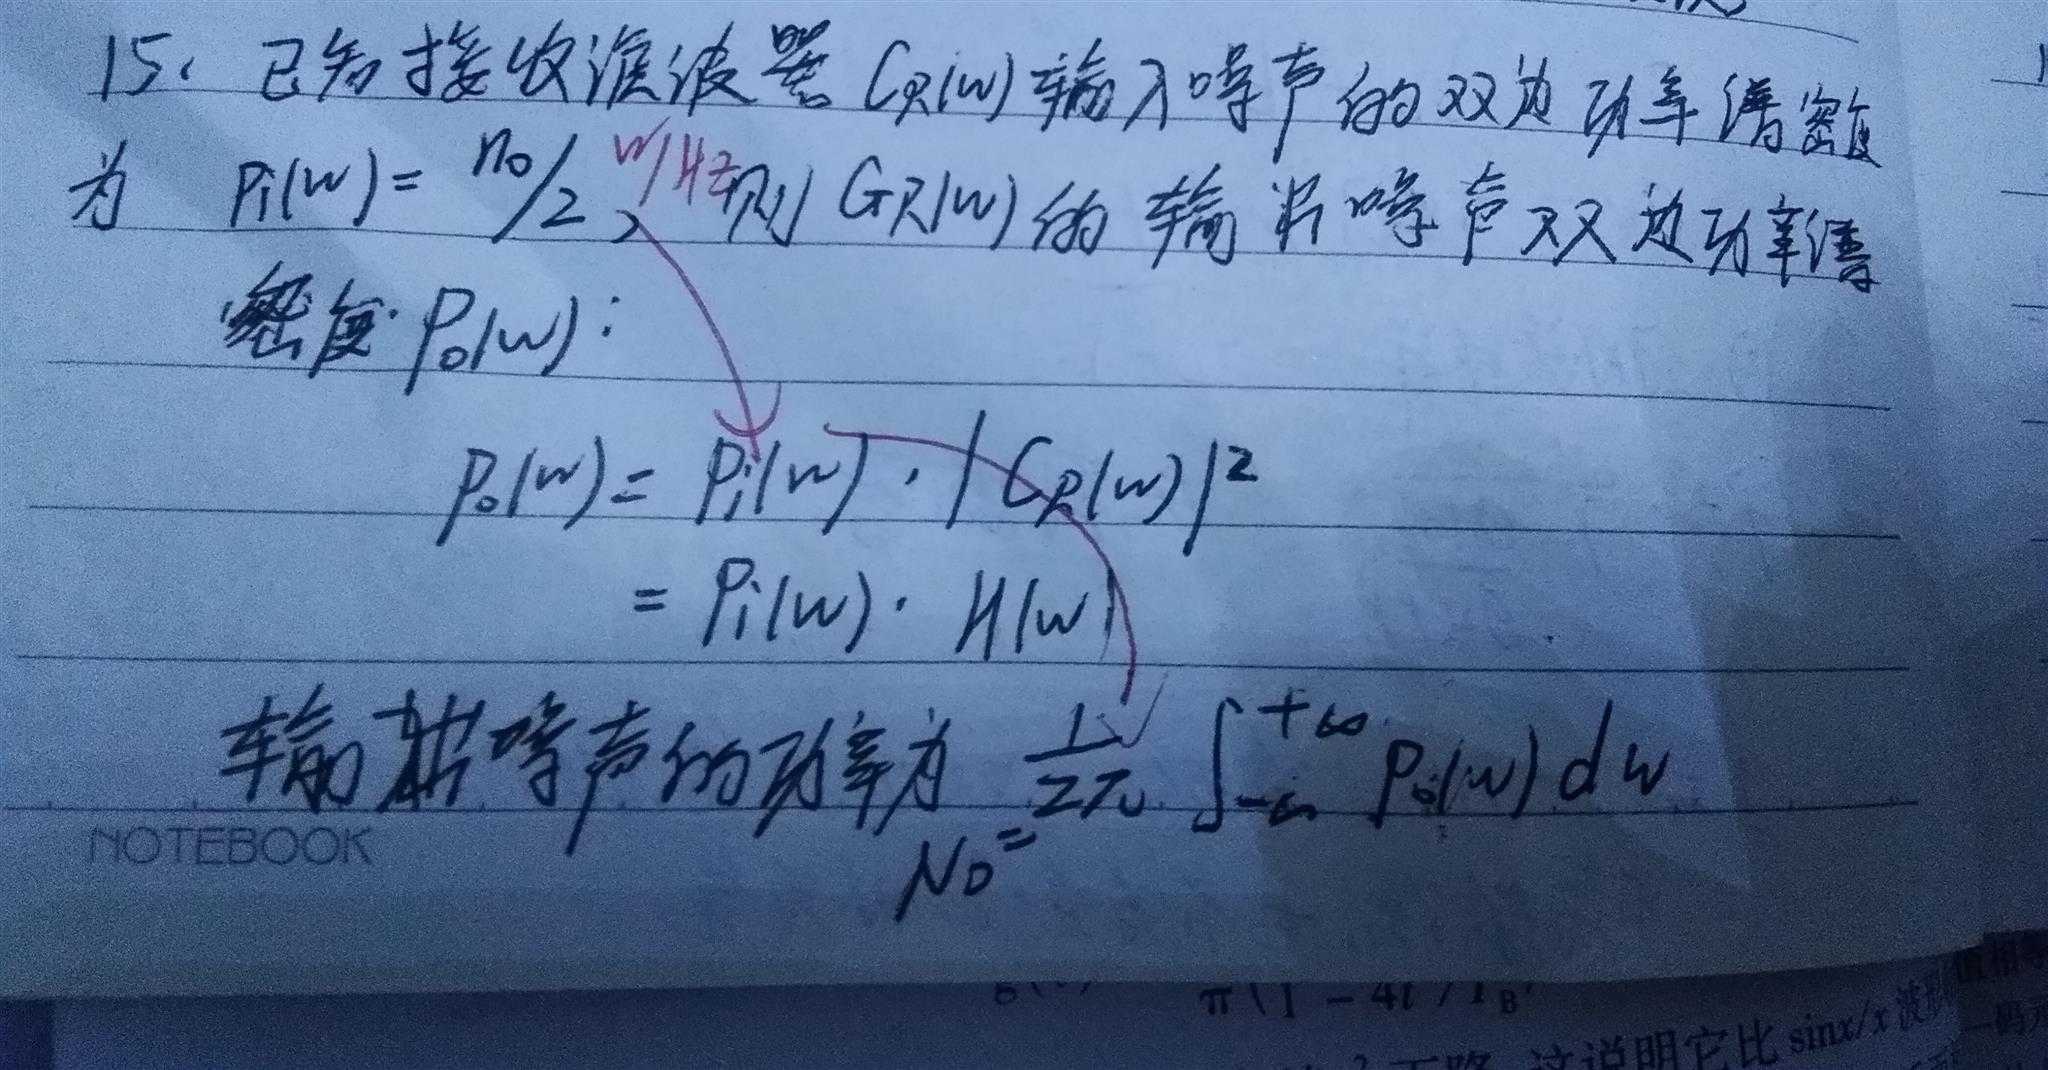 15. 已知接收滤波器 CR(w) 输入噪声的双边功率谱密度
为 Pi(w) = n0/2, W/Hz 则 GR(w) 的输出噪声双边功率谱
密度 Po(w):
Po(w) = Pi(w) · |CR(w)|²
= Pi(w) · H(w)
输出噪声的功率为 1/2π ∫-∞+∞ Po(w) dw
No =
NOTEBOOK
π(1 - 4t
这说明它比 sinx/x 波形